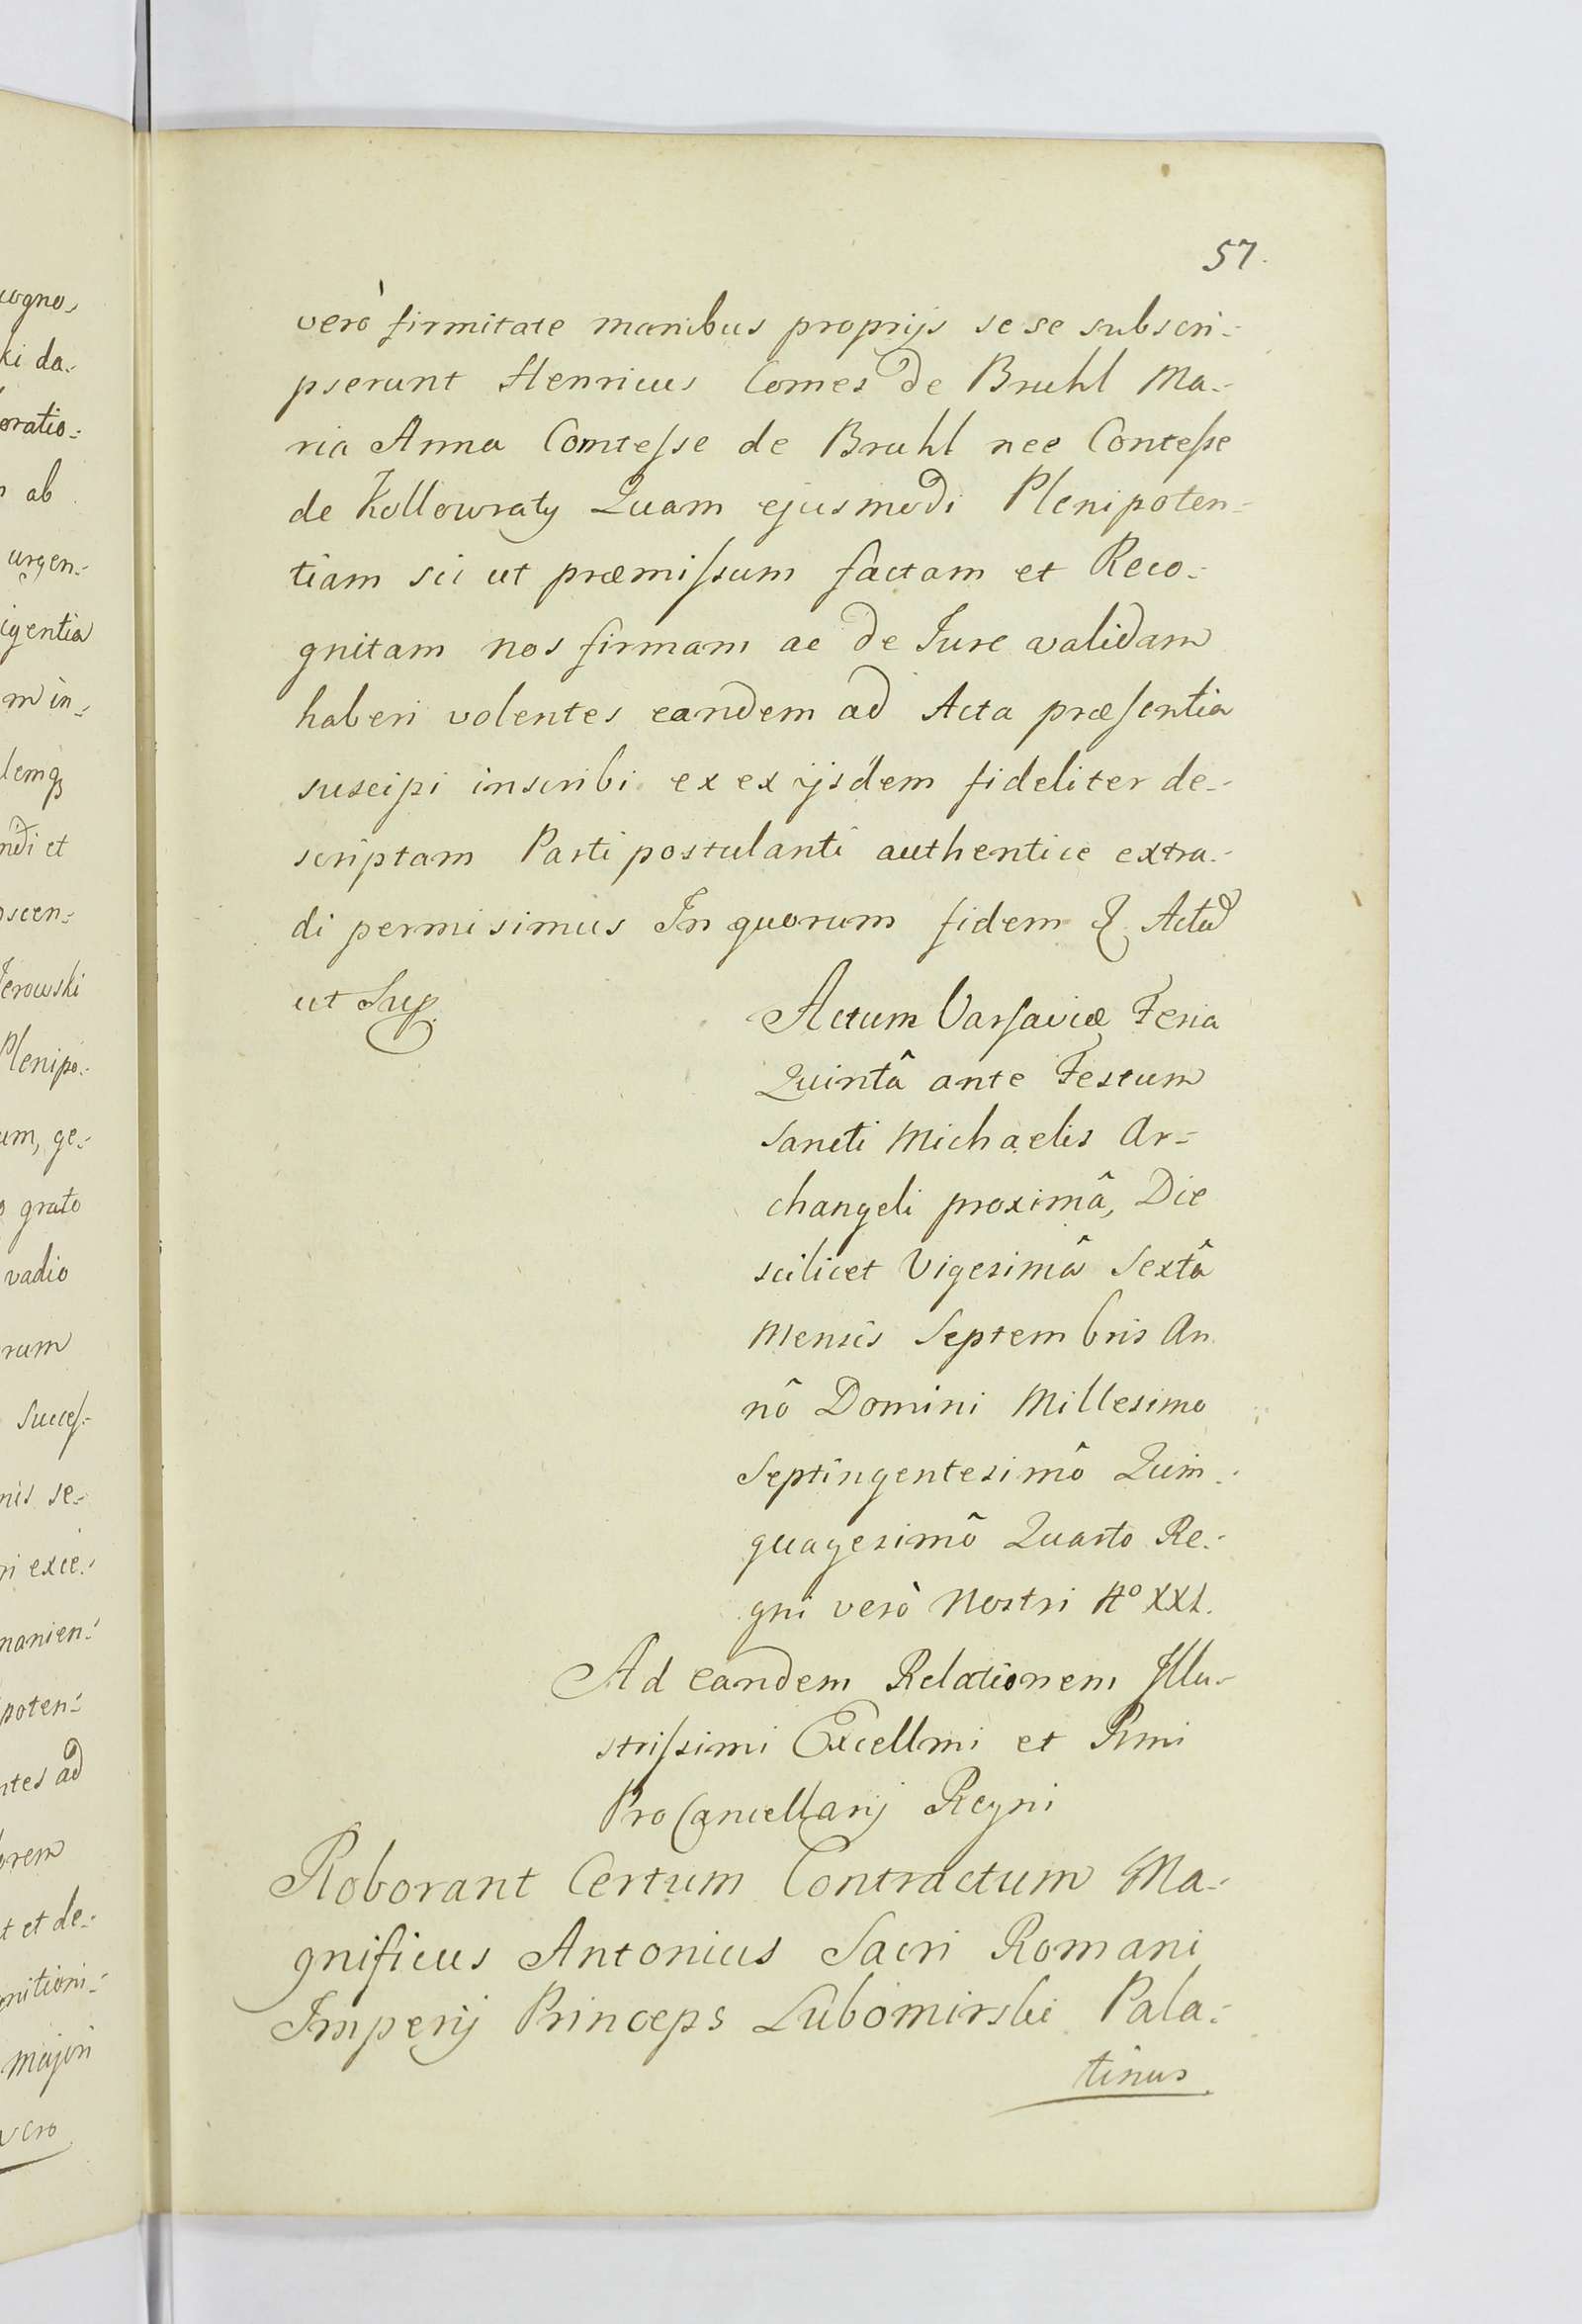 57.
verò firmitate manibus proprijs se se subscri-
pserunt Henricus Comes de Bruhl Ma-
ria Anna Comtesse de Bruhl nee Contesse
de Kollowraty Quam ejusmodi Plenipoten-
tiam sic ut præmissum factam et Reco-
gnitam nos firmam ac de Jure validam
haberi volentes eandem ad Acta præsentia
suscipi inscribi ex ex ijsdem fideliter de-
scriptam Parti postulanti authentice extra-
di permisimus In quorum fidem &. Actũ
ut Sup.
Actum Varsaviæ Feria
Quintâ ante Festum
Sancti Michaelis Ar-
changeli proximâ, Die
scilicet Vigesimâ Sextâ
Mensis Septembris An
nô Domini Millesimo
Septingentesimô Quin-
quagesimô Quarto Re-
gni verò Nostri Aº XXI.
Ad eandem Relationem Illu-
strissimi Excellmi et Rmi
ProCancellarij Regni
Roborant Certum Contractum Ma-
gnificus Antonius Sacri Romani
Imperij Princeps Lubomirski Pala-
tinus
cogno-
ki da-
oratio-
ab
urgen-
igentia
m in-
lemq
ndi et
oscen-
erowski
Plenipo-
um, ge-
grato
vadio
rum
Succes-
nis se-
ri exce-
manien-
poten-
ntes ad
orem
t et de-
nitioni-
majori
vero